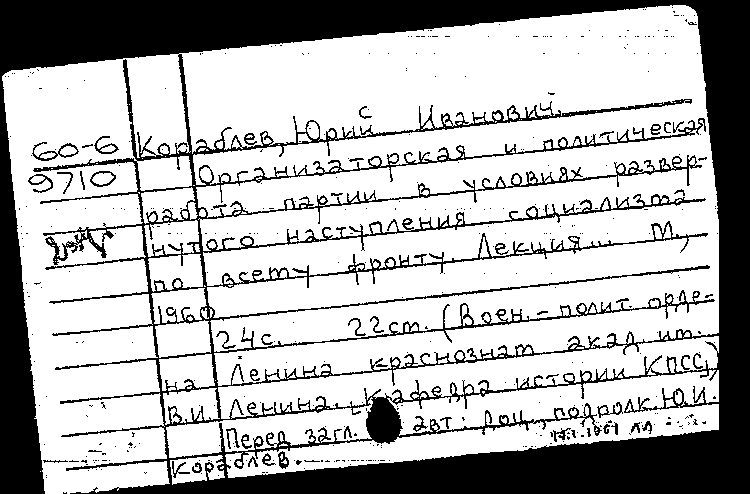 60-6 Кораблев, Юрий Иванович.
9710 Организаторская и политическая
работа партии в условиях развер-
нутого наступления социализма
по всему фронту. Лекция... М.,
1960
24с. 22см. (Воен.-полит орде-
на Ленина краснознам акад им.
В.И. Ленина. Кафедра истории КПСС)
Перед загл. авт: доц., подполк. Ю.И.
Кораблев.